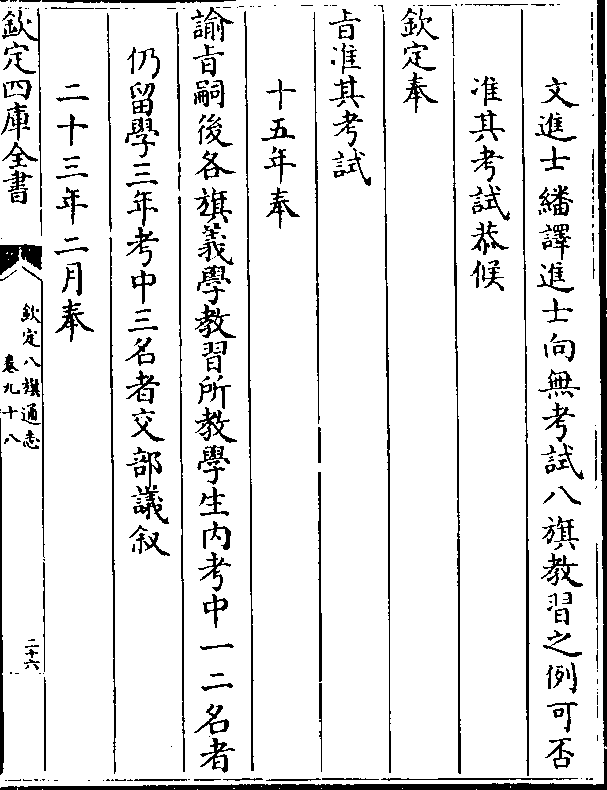 文進士繙譯進士向無考試八旗教習之例可否
准其考試恭候
欽定奉
㫖准其考試
十五年奉
諭㫖嗣後各旗義學教習所教學生内考中一二名者
仍留學三年考中三名者交部議叙
二十三年二月奉
欽定四庫全書
欽定八旗通志
卷九十八
二十六